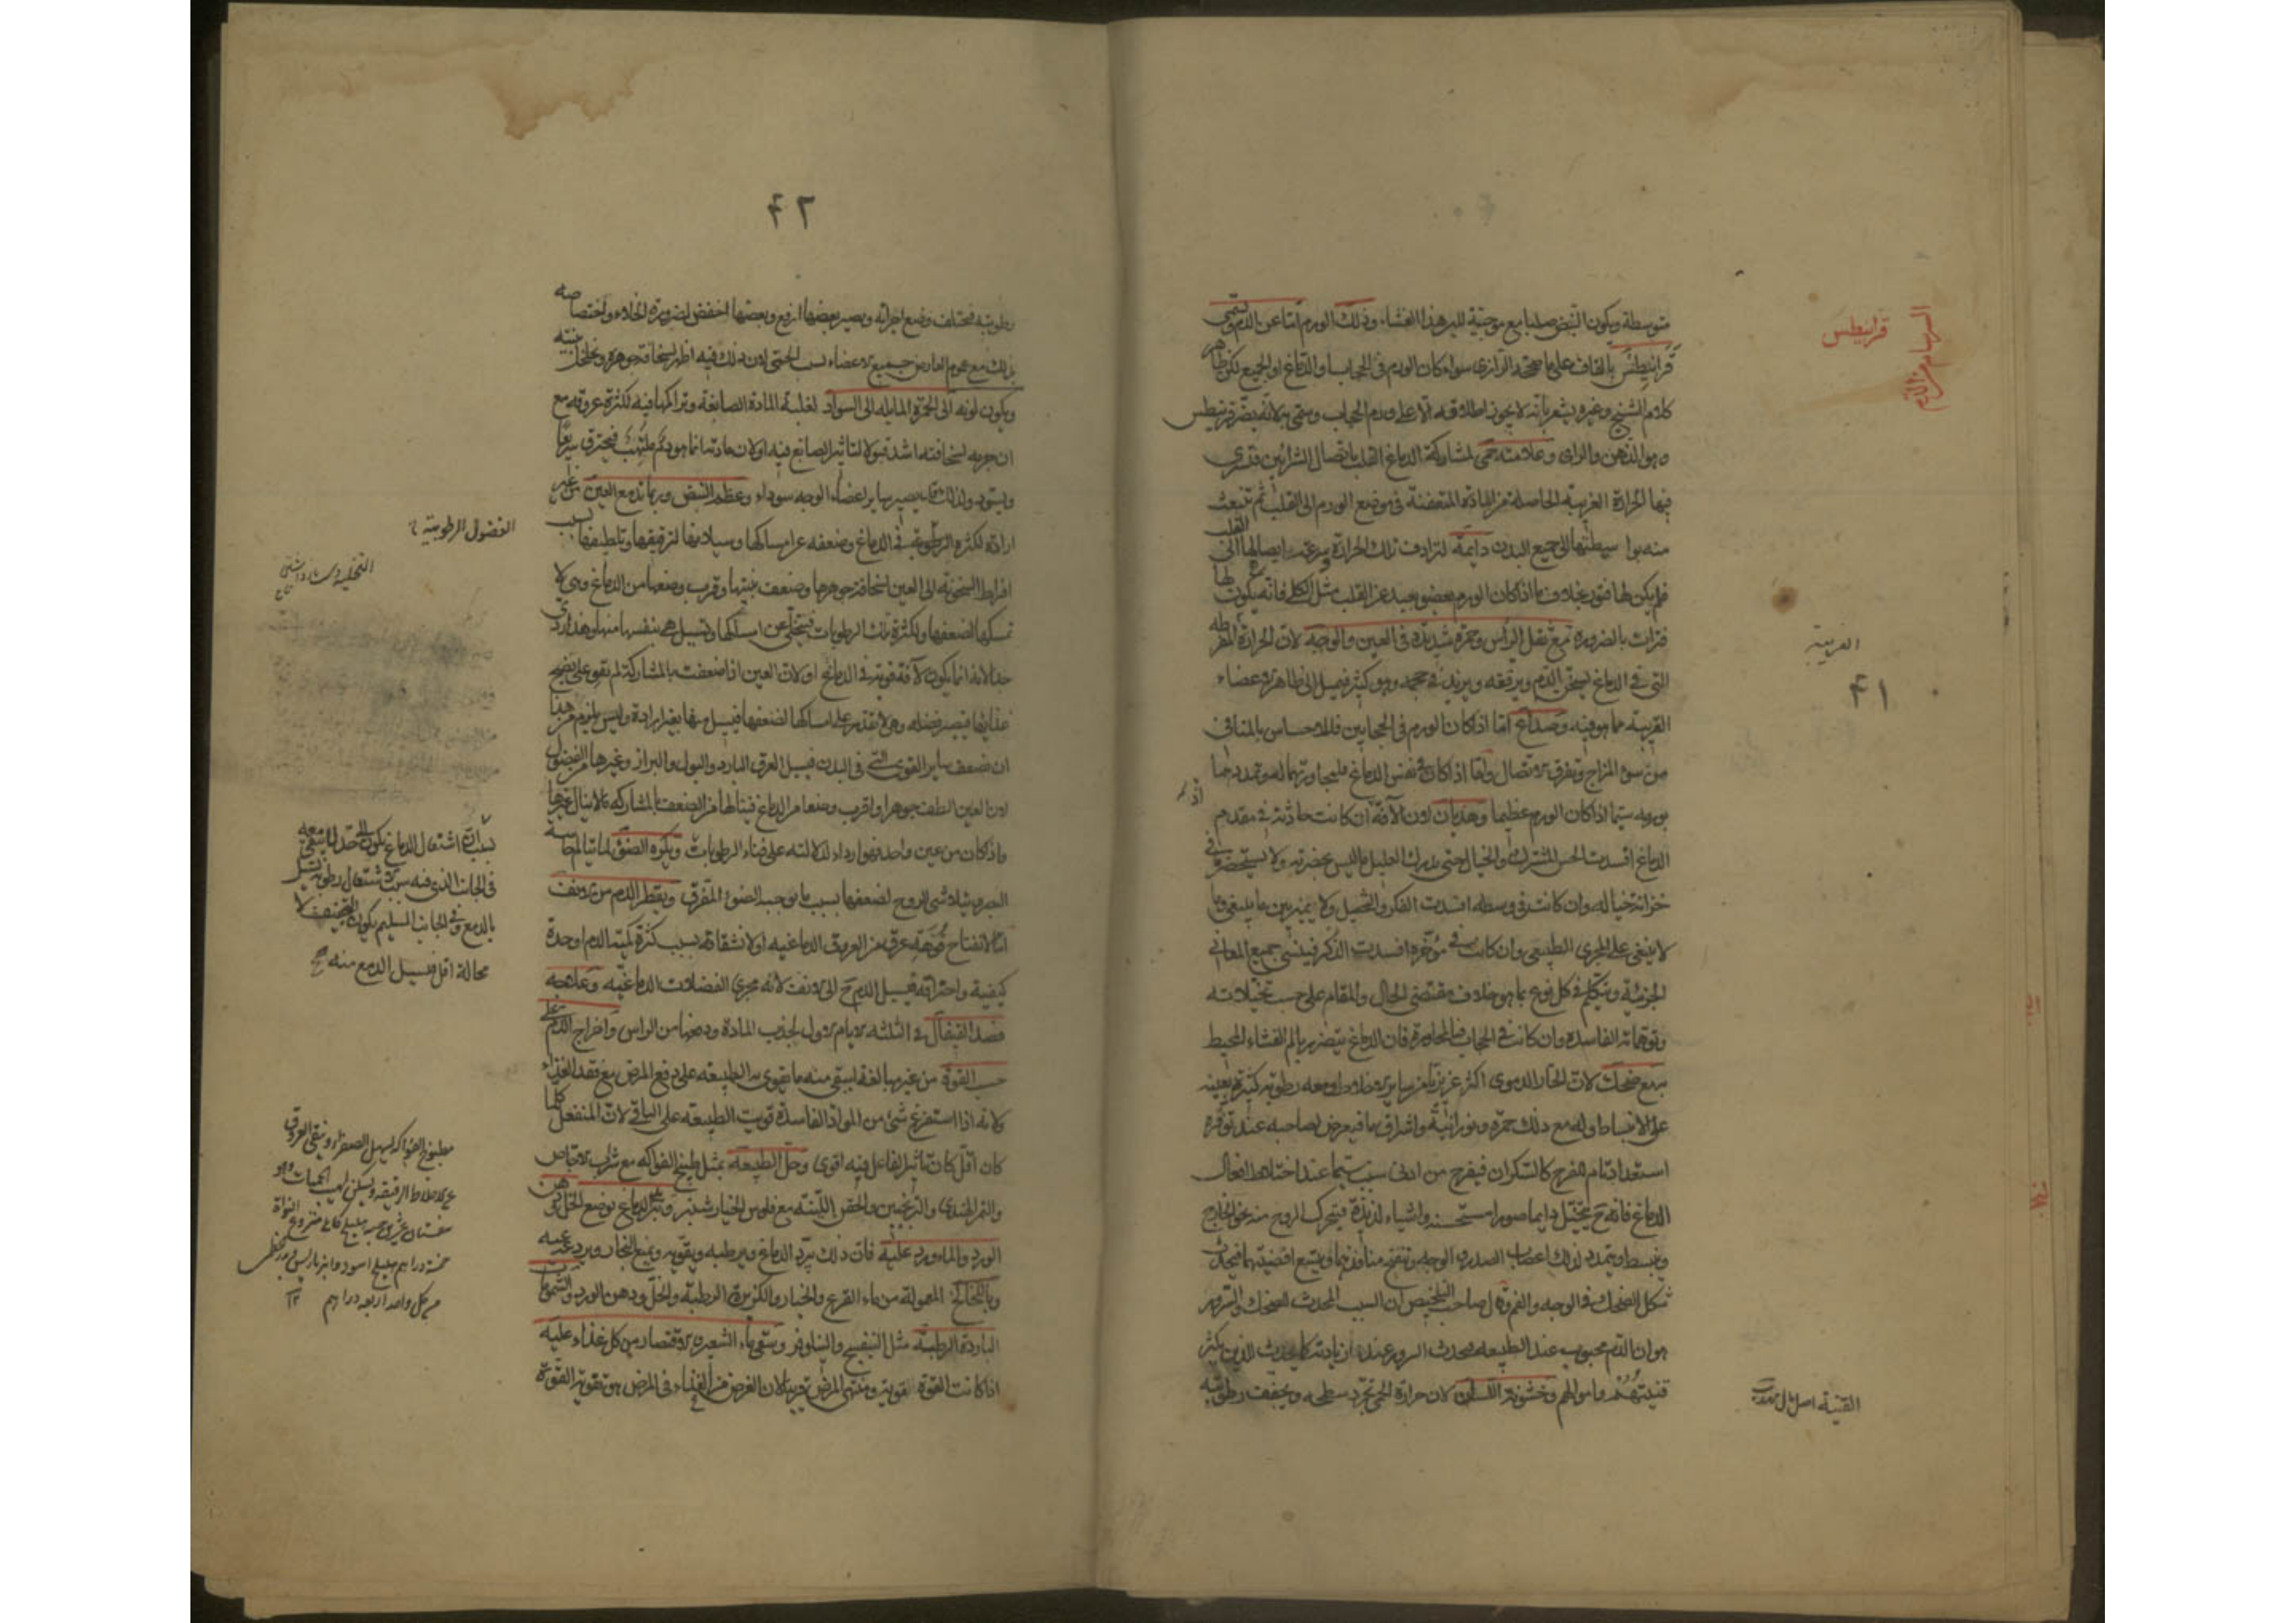 السرسام من الدم
قرانيطس
متوسطة ويكون النبض صلبا مع موجية للين هذا الغشاء وذلك الورم اما عن الدم ويسمى
قرانيطس بالقاف على ما صححه الرازى سواء كان الورم فى الحجاب او الدماغ او الجميع لكن ظاهر
كلام الشيخ وغيره يشعر بانه لا يجوز اطلاقه الا على ورم الحجاب وسمى به لانه يضر قرنيطس
وهو الذهن والراى وعلامته حمى لمشاركة الدماغ القلب باتصال الشرائين فتسرى
فيها الحرارة الغريبة الحاصلة من المادة المتعفنة فى موضع الورم الى القلب ثم تنبعث
منه بواسطتها الى جميع البدن دايمة لترادف تلك الحرارة وسرعة ايصالها الى القلب
فلم يكن لها فتور بخلاف ما اذا كان الورم بعضو بعيد عن القلب مثل الكلى فانه يكون لها
فترات بالضرورة مع ثقل الراس وحمرة شديدة فى العين والوجه لان الحرارة المفرطة
الغريبة
۴۱
التى فى الدماغ يسخن الدم ويرققه ويزيد فى حجمه وهو كثير فيميل الى ظاهر الاعضاء
القريبة مما هو فيه وصداع اما اذا كان الورم فى الحجابين فللاحساس بالمنافى
من سوء المزاج وتفرق الاتصال واما اذا كان فى نفس الدماغ فلمجاورتهما له وتمددهما
بورمه سيما اذا كان الورم عظيما وهذيان لان الآفة ان كانت حادثة فى مقدم
الدماغ افسدت الحس المشترك والخيال حتى يدرك العليل ما ليس بحضرته ولا يستحضره فى
خزانة خياله وان كانت فى وسطه افسدت الفكر والتخيل ولا يميز بين ما ينبغى وما
لا ينبغى على المجرى الطبيعى وان كانت فى مؤخره افسدت الذكر فينسى جميع المعانى
الجزئية ويتكلم فى كل نوع بما هو خلاف مقتضى الحال والمقام على حسب تخيلاته
وتوهماته الفاسدة وان كانت فى الحجاب فبالمجاورة فان الدماغ يتضرر بالم الغشاء المحيط
به مع ضحك لان البخار الدموى اكثر غريزيا من ساير الاخلاط ومعه رطوبة كثيرة يعينه
على الانبساط وله مع ذلك حمرة ونورانية واشراق ما فيعرض لصاحبه عند توفره
استعداد تام للفرح كالسكران فيفرح من ادنى سبب سيما عند اختلاط افعال
الدماغ فانه ح يتخيل دايما صورا مستحسنة واشياء لذيذة فيتحرك الروح منه نحو الخارج
وينبسط ويتمدد لذلك اعصاب الصدر والوجه وتنفتح منافذهما ويتسع افضيتهما فيحدث
شكل الضحك فى الوجه والفم وقال صاحب التلخيص ان السبب المحدث للضحك والسرور
هو ان الدم محبوب عند الطبيعة فيحدث السرور عند ازديادته كما يحدث للذين يكثر
قنيتهم واموالهم وخشونة اللسان لان حرارة الحمى تجرد سطحه ويجفف رطوبته
القنية اصل مال
۴۲
رطوبته فيختلف وضع اجزائه ويصير بعضها ارفع وبعضها اخفض لضرورة الخلاء واختصاصه
بذلك مع عموم العارض جميع الاعضاء بسبب الحمى لان ذلك فيه اظهر لسخافة جوهره وتخلخل بنيته
ويكون لونه الى الحمرة المايلة الى السواد لغلبة المادة الصابغة وتراكمها فيه لكثرة عروقه مع
ان جرمه لسخافته اشد قبولا لتاثير الصابغ فيه او لان مادتها انما هو دم ملتهب فيحترق سريعا
ويسود ولذلك قد يصير ساير اعضاء الوجه سوداء وعظم النبض وربما تدمع العين من غير
ارادة لكثرة الرطوبة فى الدماغ وضعفه عن امساكها وسيلانها لترقيقها وتلطيفها بسبب
الفضول الرطوبية
افراط السخونة الى العين لسخافة جوهرها وضعف بنيتها وقرب وضعها من الدماغ وهى لا
تمسكها لضعفها ولكثرة تلك الرطوبات فيتخلى عن امساكها وتسيل هى بنفسها منها وهذا ردى
جدا لانه انما يكون لآفة قوية فى الدماغ او لان العين اذا ضعفت بالمشاركة لم تقو على نضج
غذائها فيصير فضله وهى لا تقدر على امساكها لضعفها فيسيل منها بغير ارادة وليس يلزم من هذا
ان تضعف ساير القوى التى فى البدن فيسيل العرق البارد والبول والبراز وغيرها من الفضول
لان العين الطف جوهرا واقرب وضعا من الدماغ فينالها من الضعف بالمشاركة ما لا ينال غيرها
واذا كان من عين واحدة فهو اردا لدلالته على فناء الرطوبات ويكره الضوء لما يتالم حاسة
البصر ويتلاشى الروح لضعفها بسبب ما يوجبه الضوء المفرق ويقطر الدم من الانف
اما لانفتاح فوهة عرق من العروق الدماغية او لانشقاقه بسبب كثرة كمية الدم او حدة
كيفية واحتراقه فيسيل الدم ح الى الانف لانه مجرى الفضلات الدماغية وعلاجه
فصد القيفال فى الثلثة الايام الاول لجذب المادة ودفعها من الراس واخراج الدم على
حسب القوة من غير مبالغة ليبقى منه ما يقوى به الطبيعة على دفع المرض مع فقد الغذاء
ولانه اذا استفرغ شئ من المواد الفاسدة قويت الطبيعة على الباقى لان المنفعل كلما
كان اقل كان تاثير الفاعل فيه اقوى وحل الطبيعة بمثل طبيخ الفواكه مع شراب الاجاص
والتمر الهندى والترنجبين والحقن اللينة مع فلوس الخيار شنبر وتبريد الدماغ بوضع الخل ودهن
الورد والماورد عليه فان ذلك يبرد الدماغ ويرطبه ويقويه ويمنع البخار ويردعه عنه
وباللخالخ المعمولة من ماء القرع والخيار والكزبرة الرطبة والخل ودهن الورد والشمومات
الباردة الرطبة مثل البنفسج والنيلوفر وسقى ماء الشعير والاقتصار من كل غذاء عليه
اذا كانت القوة قوية ومنتهى المرض قريبا لان الغرض من الغذاء فى المرض هو تقوية القوة
بسبب ان اشتعال الدماغ يكون الى حد لا يبقى معه
فى الجانب الذى فيه سبب الاشتعال رطوبة تسيل
بالدمع وفى الجانب السليم يكون التجفيف لا
محالة اقل فيسيل الدمع منه
مطبوخ الفواكه يسهل الصفراء وينقى العروق
من الاخلاط الرقيقة ويسكن لهيب الحميات وهو